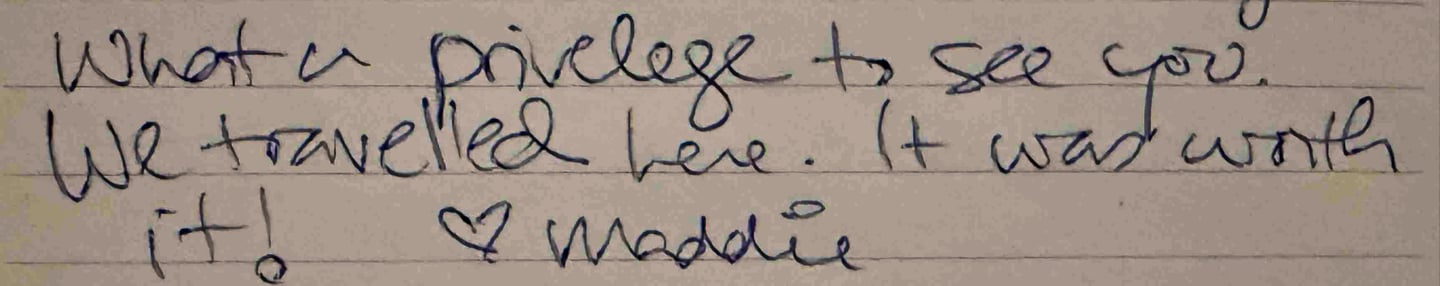 What a privelege to see you.
We travelled here. It was worth
it! ♡ Maddie